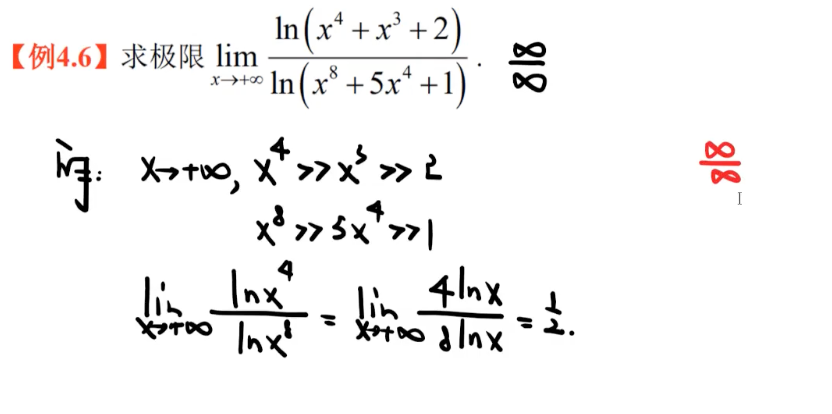 【例4.6】求极限 lim x→+∞ ln(x⁴+x³+2) / ln(x⁸+5x⁴+1) . ∞/∞
解: x→+∞, x⁴ >> x³ >> 2
∞/∞
x⁸ >> 5x⁴ >> 1
lim x→+∞ lnx⁴ / lnx⁸ = lim x→+∞ 4lnx / 8lnx = 1/2.